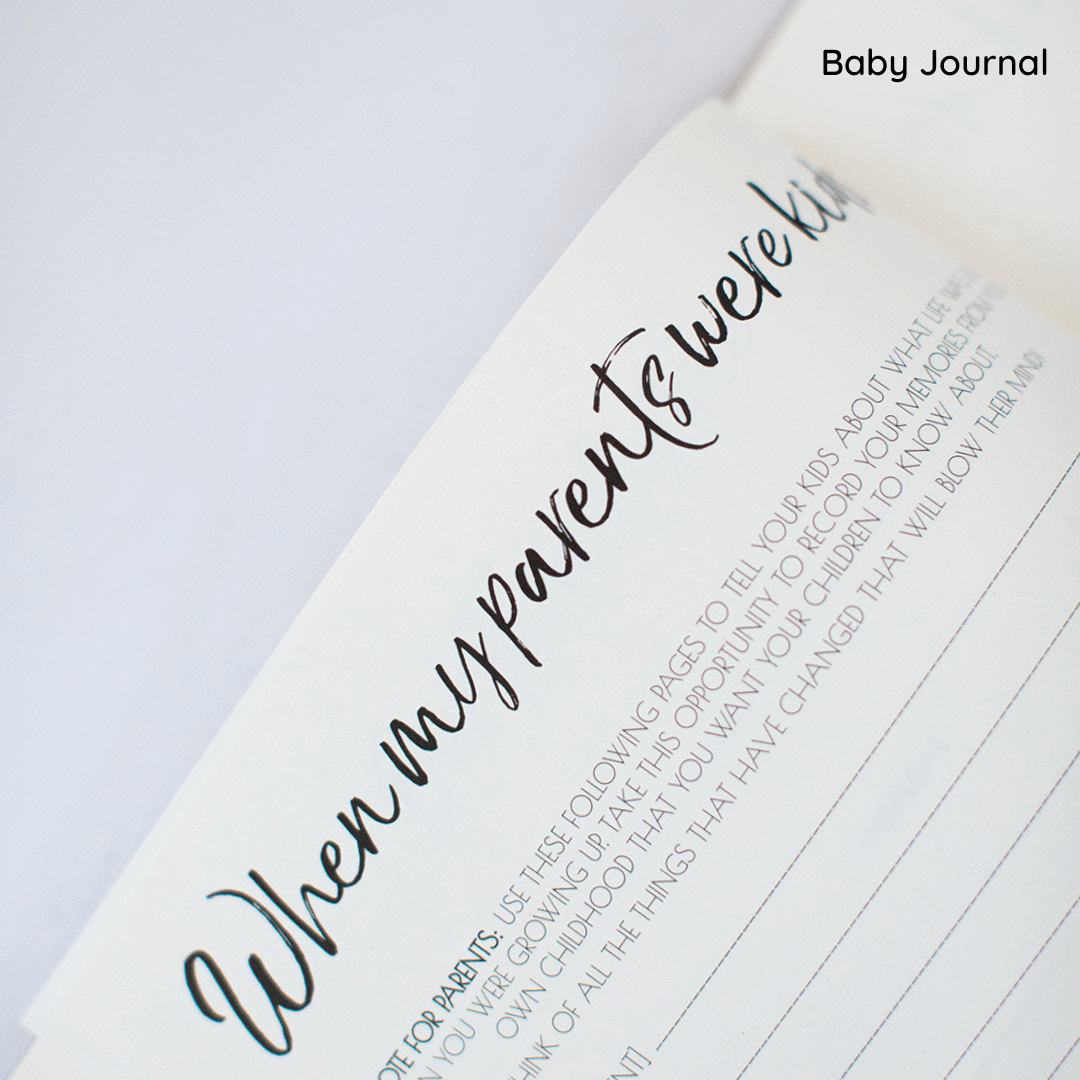 Baby Journal
When my parents were kids
NOTE FOR PARENTS: USE THESE FOLLOWING PAGES TO TELL YOUR KIDS ABOUT WHAT LIFE WAS
YOU WERE GROWING UP. TAKE THIS OPPORTUNITY TO RECORD YOUR MEMORIES FROM
OWN CHILDHOOD THAT YOU WANT YOUR CHILDREN TO KNOW ABOUT.
THINK OF ALL THE THINGS THAT HAVE CHANGED THAT WILL BLOW THEIR MIND!